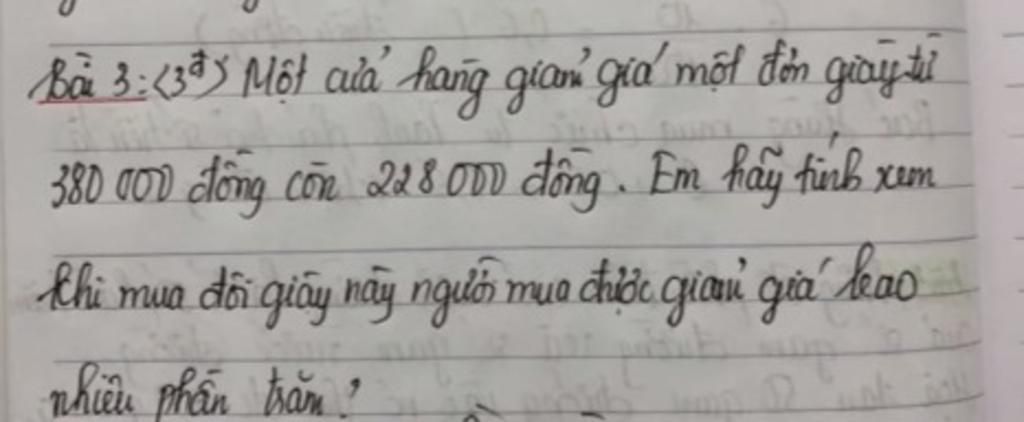 Bài 3: (3đ) Một cửa hàng giảm giá một đôn giày từ
380 000 đồng còn 228 000 đồng. Em hãy tính xem
khi mua đôi giày này người mua được giảm giá bao
nhiêu phần trăm?